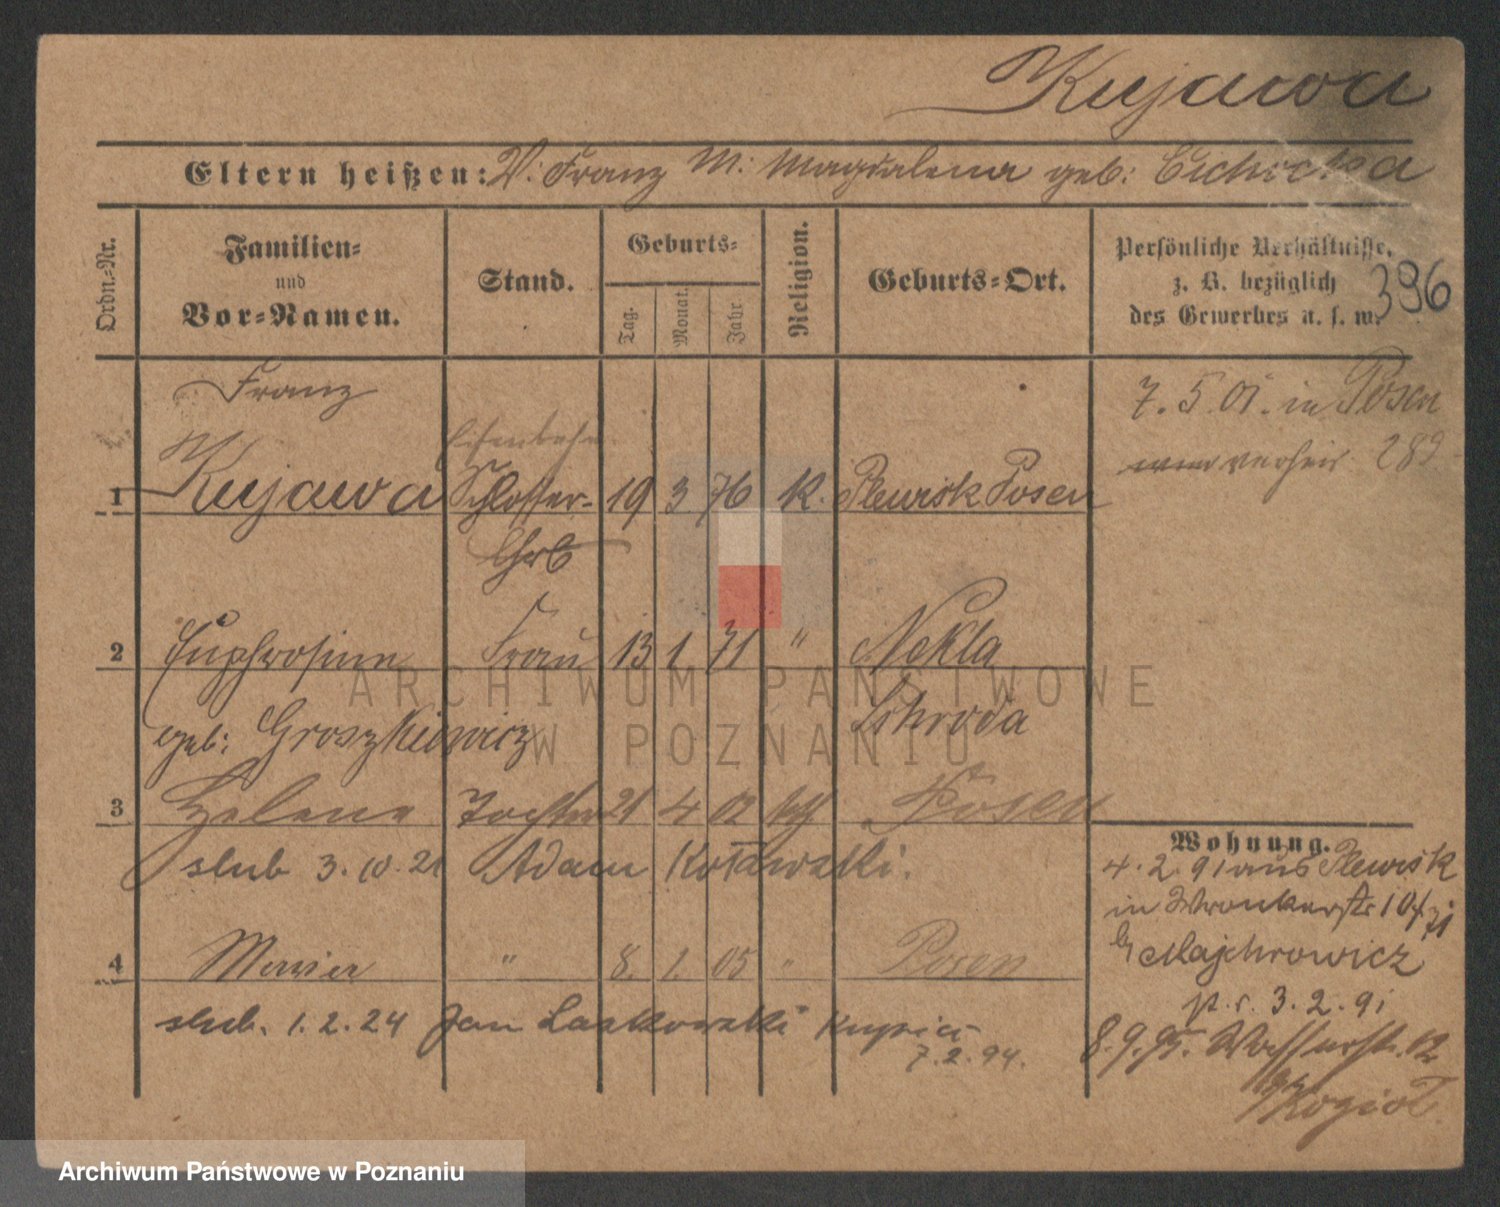 Kujawa
Eltern heißen: V: Franz M: Magdalena geb: Cichocka
Ordn.-Nr.
Familien-
und
Vor-Namen.
Stand.
Geburts-
Tag.
Monat.
Jahr
Religion.
Geburts-Ort.
Persönliche Verhältnisse,
z. B. bezüglich
des Gewerbes u. s. w.
396
Franz
7. 5. 01. in Posen
verheir. 289
Eisenbahn
1 Kujawa Schlosser- 19 3 76 K. Plewisk Posen
2 Euphrosine Frau 13 1. 71 " Nekla
geb: Groszkiewicz Schroda
3 Helene Tochter 21 4 02 kth Posen
slub 3. 10. 21 Adam Kotawski.
4 Maria " 8. 1. 05 " Posen
slub. 1. 2. 24 Jan Laskowski kupiec
7. 2. 94.
Wohnung.
4. 2. 91 aus Plewisk
in Wronkerstr 10
b/ Majchrowicz
3. 2. 91
8. 9. 95. Wasserstr. 12
Koziol
ARCHIWUM PAŃSTWOWE
W POZNANIU
Archiwum Państwowe w Poznaniu